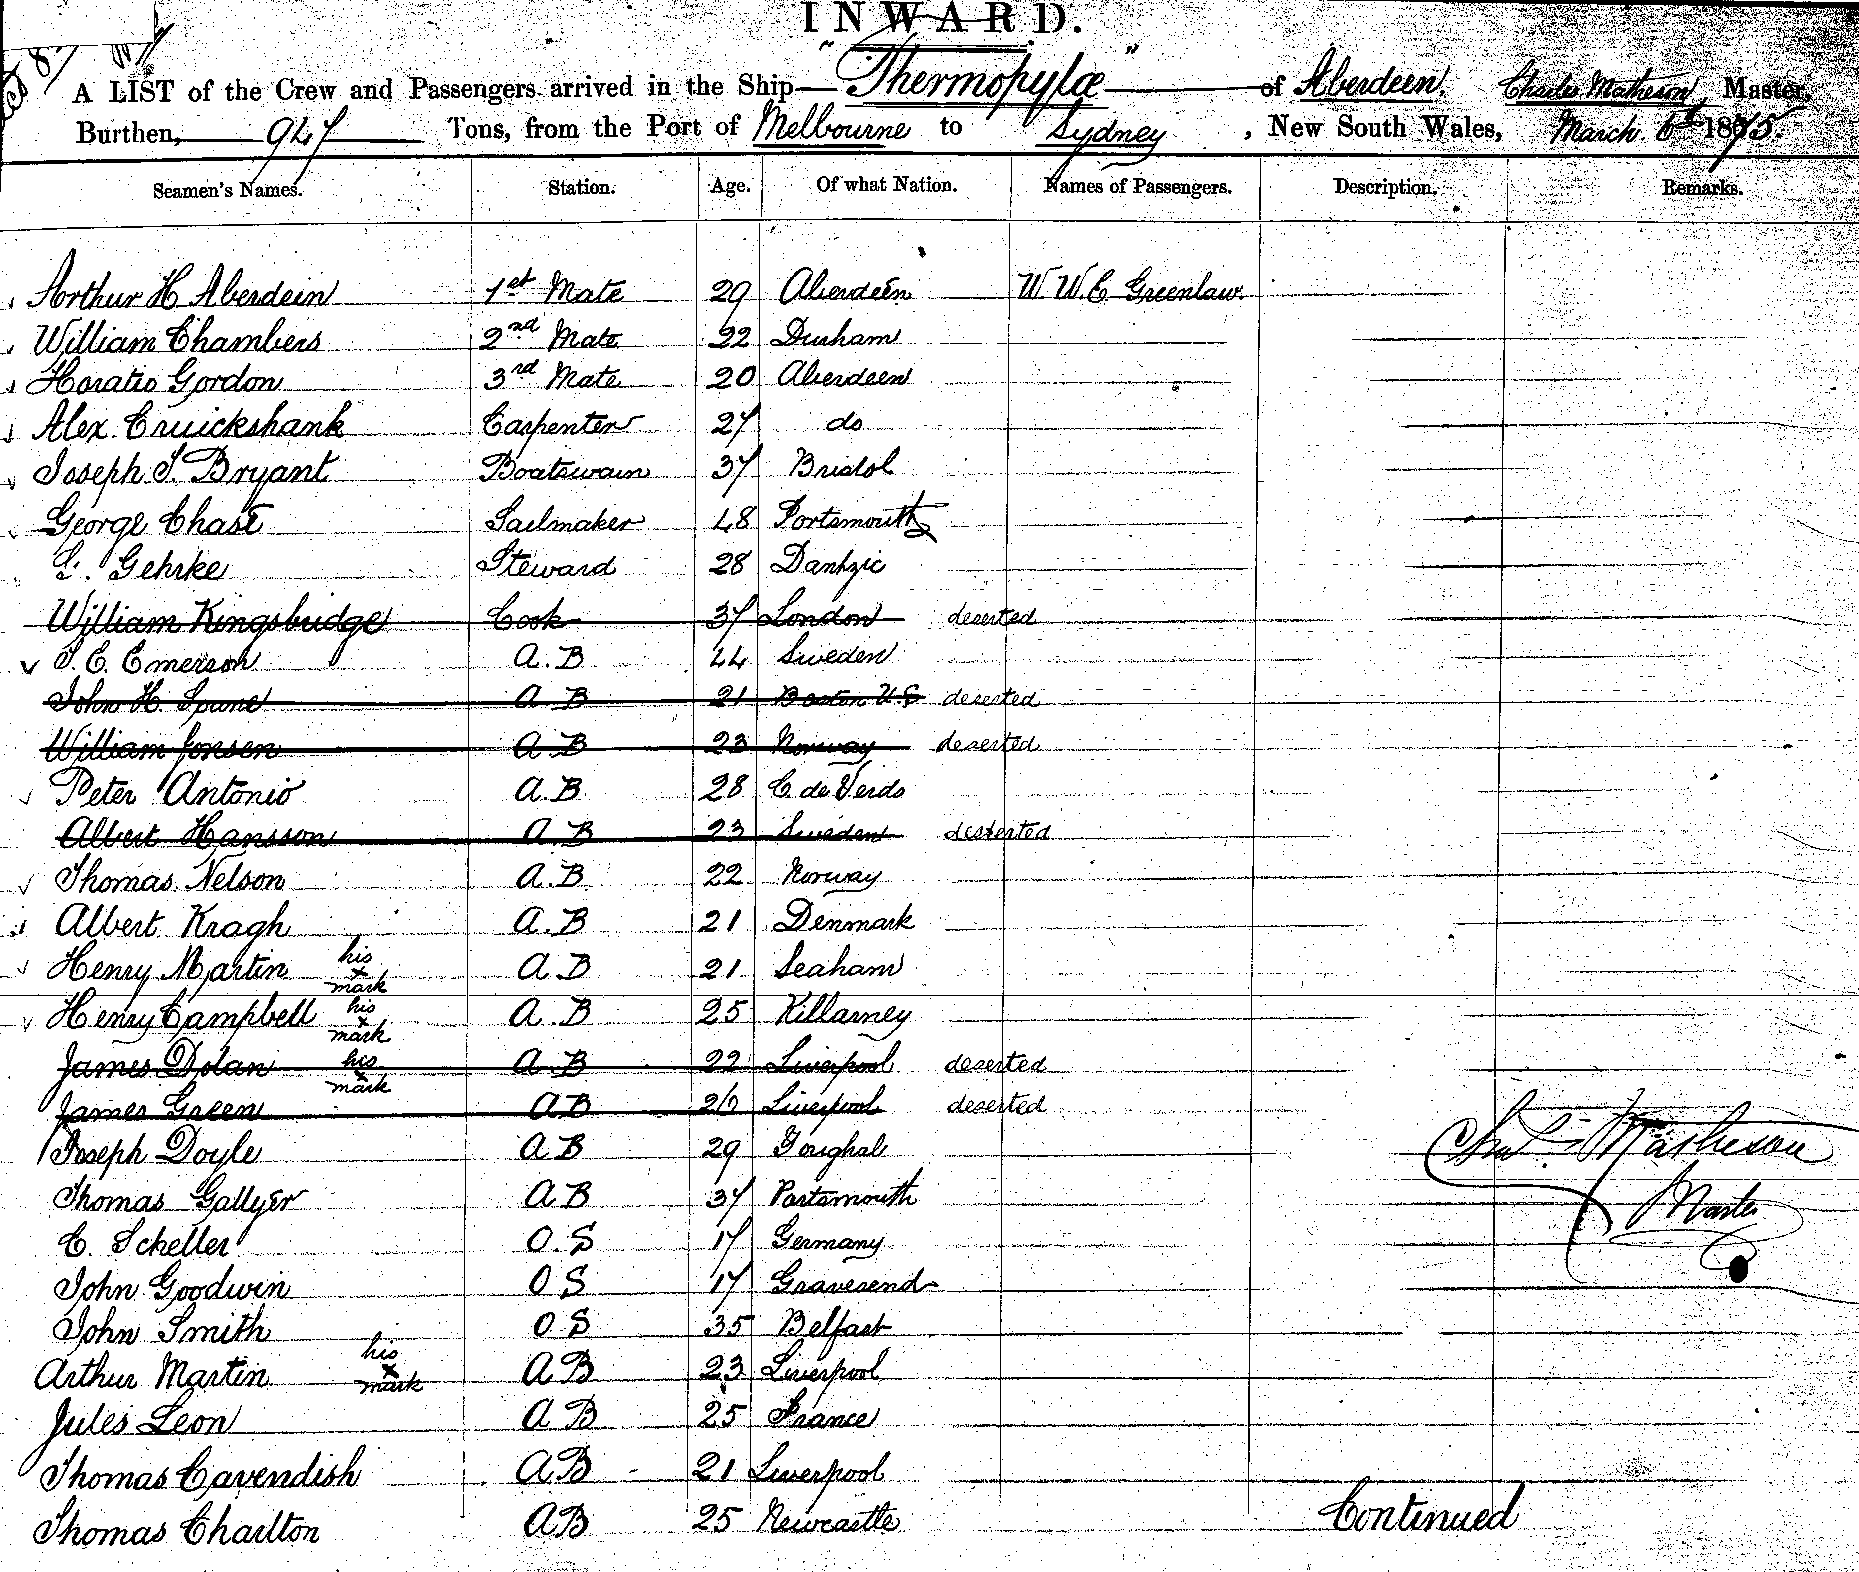 INWARD.
A LIST of the Crew and Passengers arrived in the Ship "Thermopylæ" of Aberdeen, Charles Matheson, Master,
Burthen, 947 Tons, from the Port of Melbourne to Sydney, New South Wales, March 6th 1875.
Seamen's Names. Station. Age. Of what Nation. Names of Passengers. Description. Remarks.
Arthur H Aberdein 1st Mate 29 Aberdeen W W. E Greenlaw
William Chambers 2nd Mate 22 Durham
Horatio Gordon 3rd Mate 20 Aberdeen
Alex. Cruickshank Carpenter 27 do
Joseph S. Bryant Boatswain 37 Bristol
George Chase Sailmaker 48 Portsmouth
Gehrke Steward 28 Dantzic
William Kingsbudge Cook 37 London deserted
Emerson A. B 44 Sweden
John H. A B 21 Boston U.S deserted
William Jonsen A B 23 Norway deserted
Peter Antonio A. B 28 C. de Verds
Albert Hansson A B 23 Sweden deserted
Thomas Nelson A. B 22 Norway
Albert Kragh A. B 21 Denmark
Henry Martin his x mark A B 21 Seaham
Henry Campbell his x mark A. B 25 Killarney
James Dolan his x mark A B 22 Liverpool deserted
James Green A B 26 Liverpool deserted
Joseph Doyle A B 29 Youghal
Thomas Gallyer A B 37 Portsmouth
C. Scheller O. S 17 Germany
John Goodwin O S 17 Gravesend
John Smith O S 35 Belfast
Arthur Martin his x mark A B 23 Liverpool
Jules Leon A B 25 France
Thomas Cavendish A B 21 Liverpool
Thomas Charlton A B 25 Newcastle
Chas. Matheson
Master
Continued